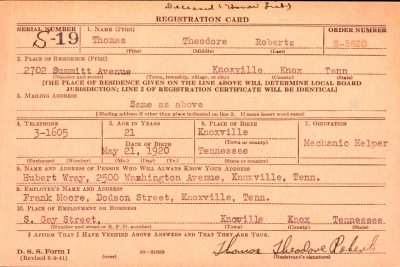 Deceased (Honor List)
REGISTRATION CARD
SERIAL NUMBER 1. NAME (Print) ORDER NUMBER
S-19 Thomas Theodore Roberts S-3620
(First) (Middle) (Last)
2. PLACE OF RESIDENCE (Print)
2702 Summitt Avenue Knoxville Knox Tenn
(Number and street) (Town, township, village, or city) (County) (State)
[THE PLACE OF RESIDENCE GIVEN ON THE LINE ABOVE WILL DETERMINE LOCAL BOARD
JURISDICTION; LINE 2 OF REGISTRATION CERTIFICATE WILL BE IDENTICAL]
3. MAILING ADDRESS
Same as above
[Mailing address if other than place indicated on line 2. If same insert word same]
4. TELEPHONE 5. AGE IN YEARS 6. PLACE OF BIRTH 7. OCCUPATION
3-1605 21 Knoxville
DATE OF BIRTH (Town or county) Mechanic Helper
May 21, 1920 Tennessee
(Exchange) (Number) (Mo.) (Day) (Yr.) (State or country)
8. NAME AND ADDRESS OF PERSON WHO WILL ALWAYS KNOW YOUR ADDRESS
Hubert Wray, 2500 Washington Avenue, Knoxville, Tenn.
9. EMPLOYER'S NAME AND ADDRESS
Frank Moore, Dodson Street, Knoxville, Tenn.
10. PLACE OF EMPLOYMENT OR BUSINESS
S. Gay Street, Knoxville Knox Tennessee
(Number and street or R. F. D. number) (Town) (County) (State)
I AFFIRM THAT I HAVE VERIFIED ABOVE ANSWERS AND THAT THEY ARE TRUE.
D. S. S. Form 1
(Revised 6-9-41) (over) Thomas Theodore Roberts